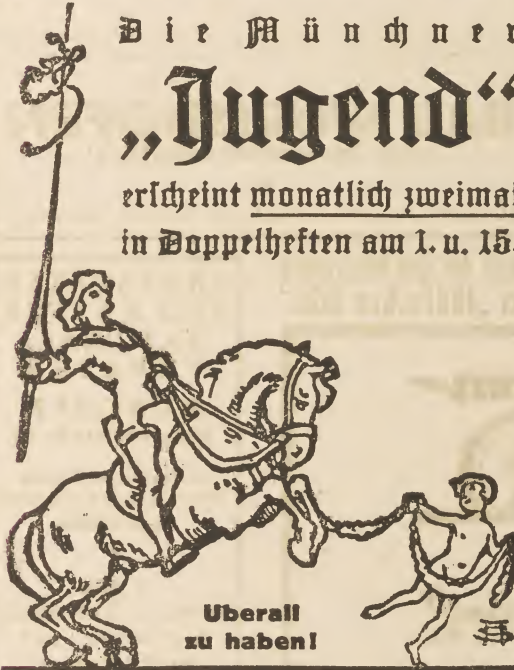 Die Münchner
„Jugend“
erscheint monatlich zweimal
in Doppelheften am 1. u. 15.
Uberall
zu haben!